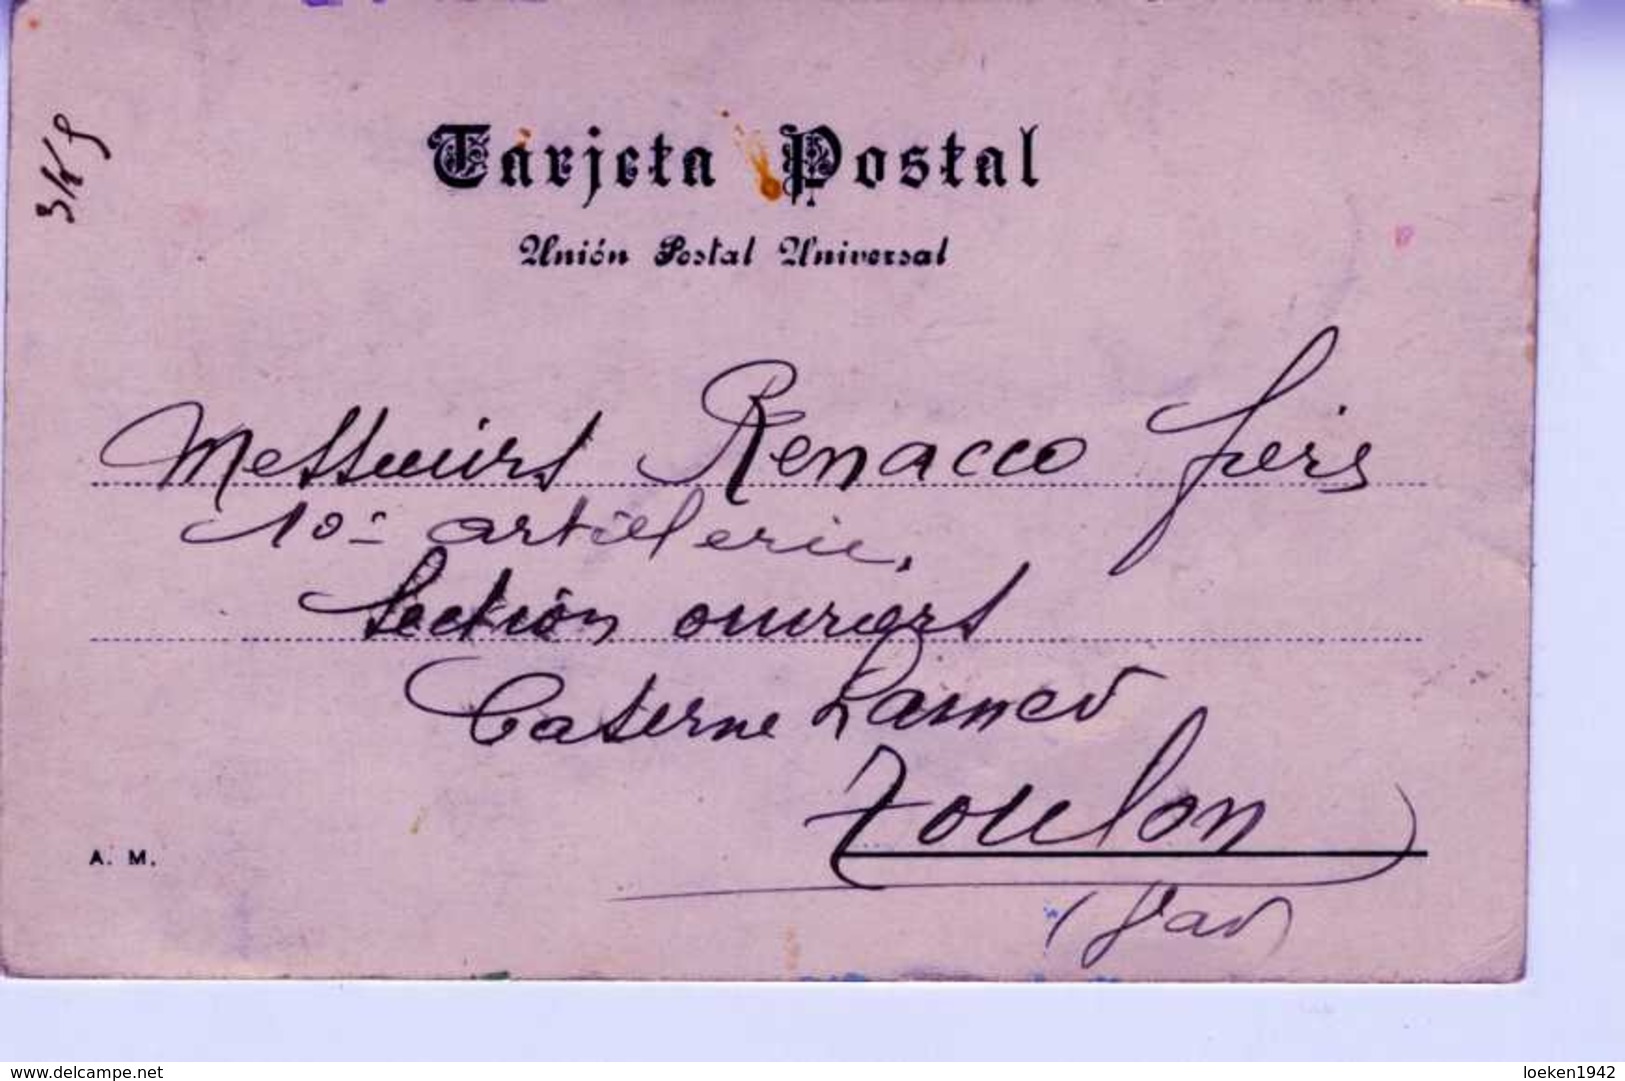 Tarjeta Postal
Unión Postal Universal
Messieurs Renacco frères
10e artillerie,
Section ouvriers
Caserne
Toulon
(Var)
A. M.
www.delcampe.net
loeken1942